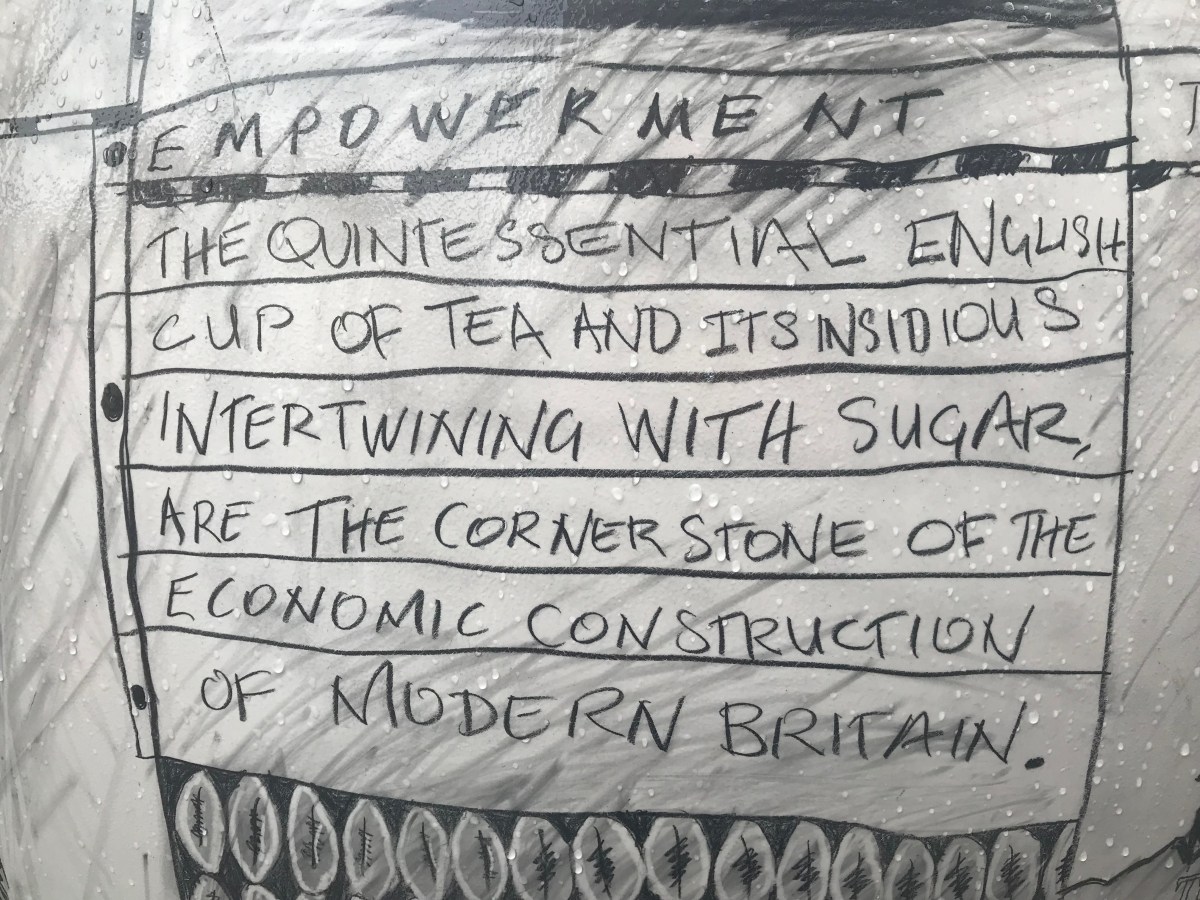 EMPOWERMENT
THE QUINTESSENTIAL ENGLISH
CUP OF TEA AND ITS INSIDIOUS
INTERTWINING WITH SUGAR,
ARE THE CORNERSTONE OF THE
ECONOMIC CONSTRUCTION
OF MODERN BRITAIN.